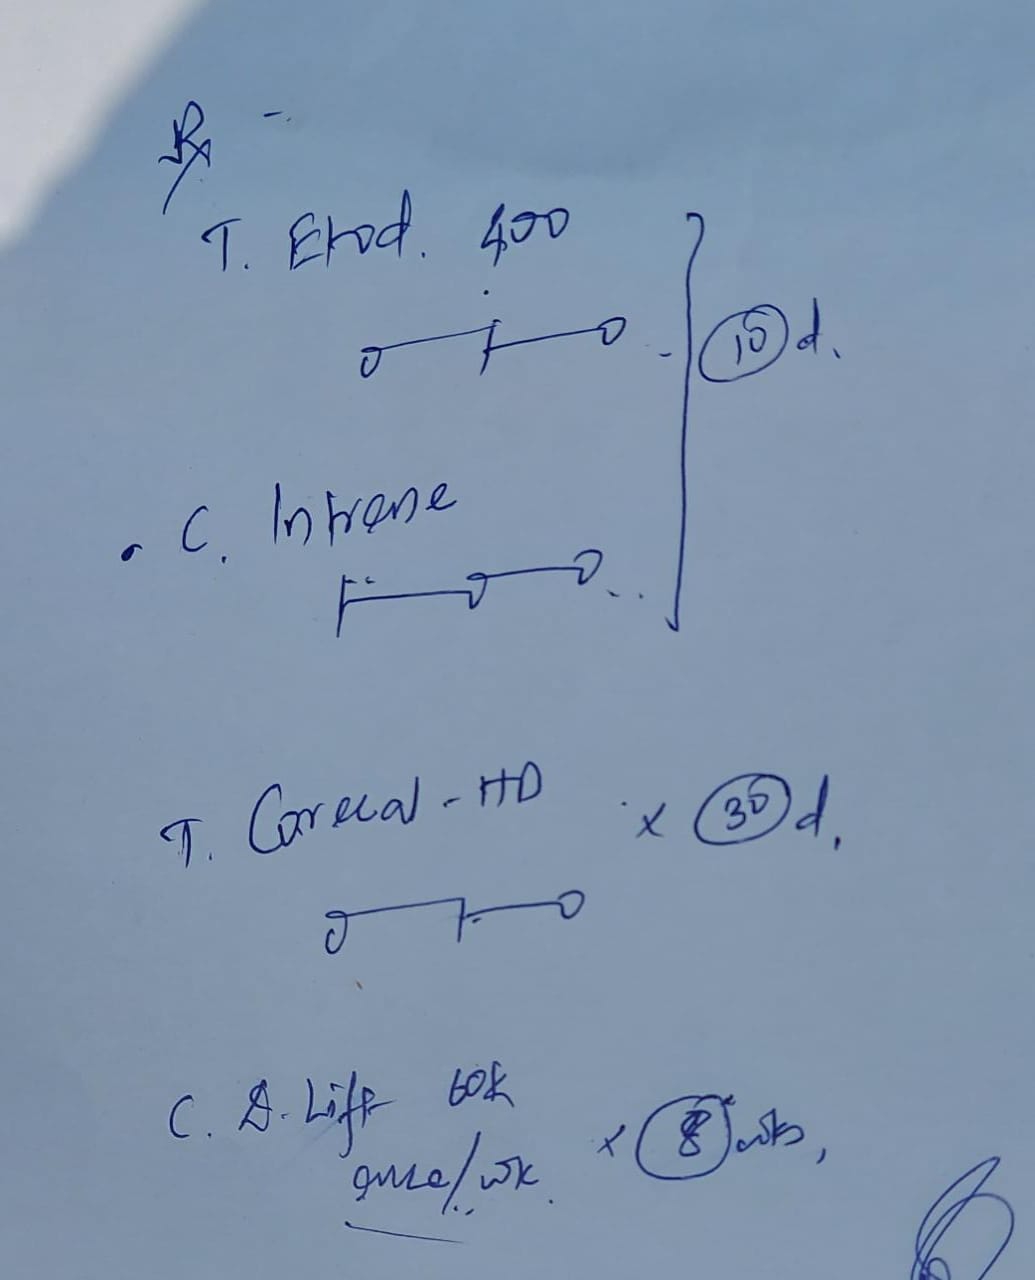 Rx -
T. Etod. 400
0—1—0
10 d.
. C. Intrane
1—0—0
T. Corecal-HD x 30 d.
0—1—0
C. D. Lift 60k
once/wk. x 8 wks,